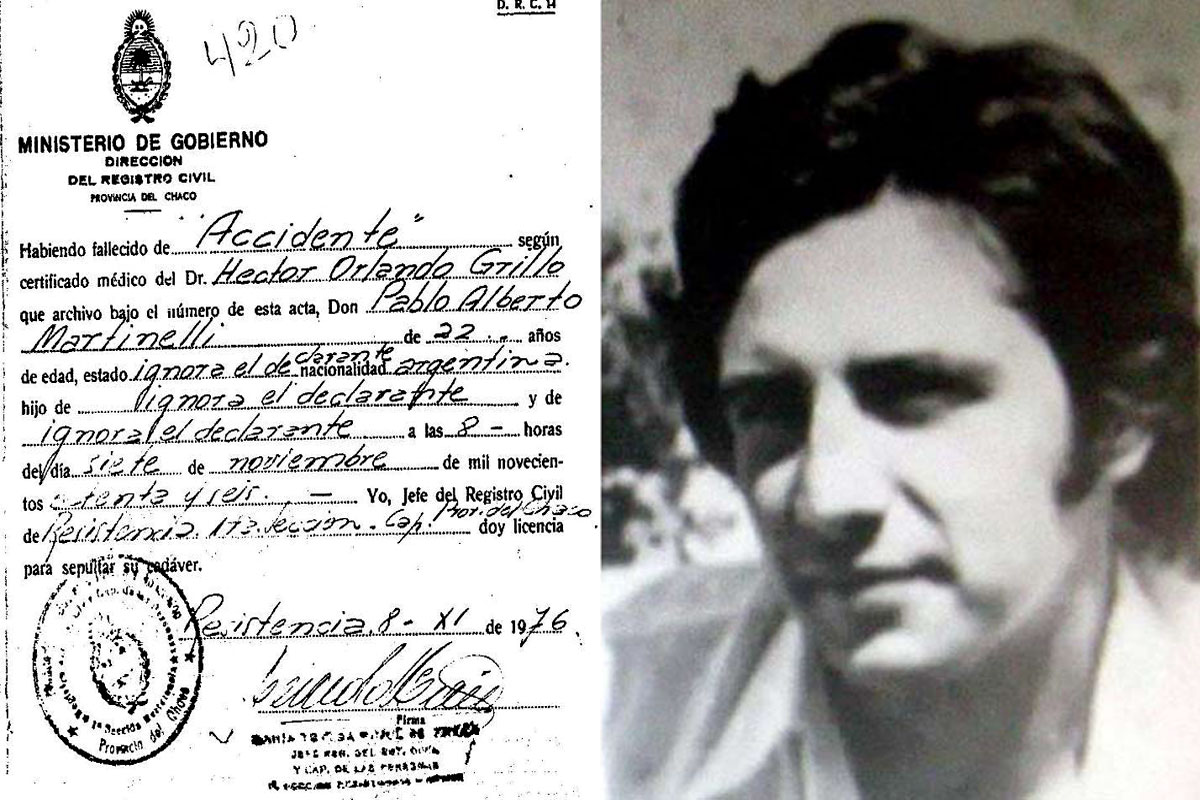 D. R. C. H
420
MINISTERIO DE GOBIERNO
DIRECCION
DEL REGISTRO CIVIL
PROVINCIA DEL CHACO
Habiendo fallecido de "Accidente" según
certificado médico del Dr. Hector Orlando Grillo
que archivo bajo el número de esta acta, Don Pablo Alberto
Martinelli de 22 años
de edad, estado ignora el declarante nacionalidad argentina.
hijo de ignora el declarante y de
ignora el declarante a las 8 - horas
del día siete de noviembre de mil novecien-
tos setenta y seis. — Yo, Jefe del Registro Civil
de Resistencia 1ra. Sección. Cap. Prov. del Chaco doy licencia
para sepultar su cadáver.
Resistencia, 8 - XI de 1976.
Firma
Y CAP. DE LAS PERSONAS
Provincia del Chaco